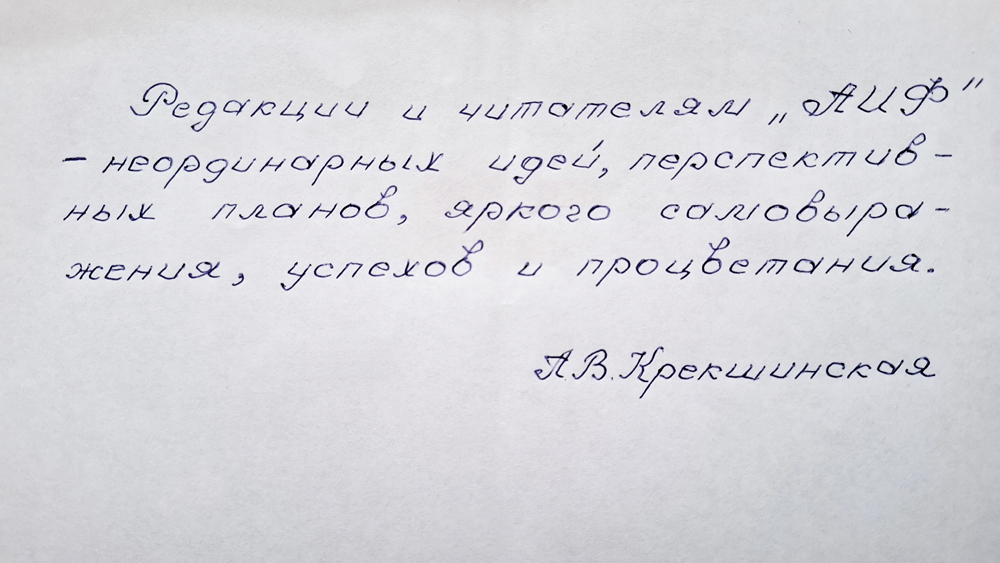 Редакции и читателям „АИФ"
- неординарных идей, перспектив-
ных планов, яркого самовыра-
жения, успехов и процветания.
А.В. Крекшинская